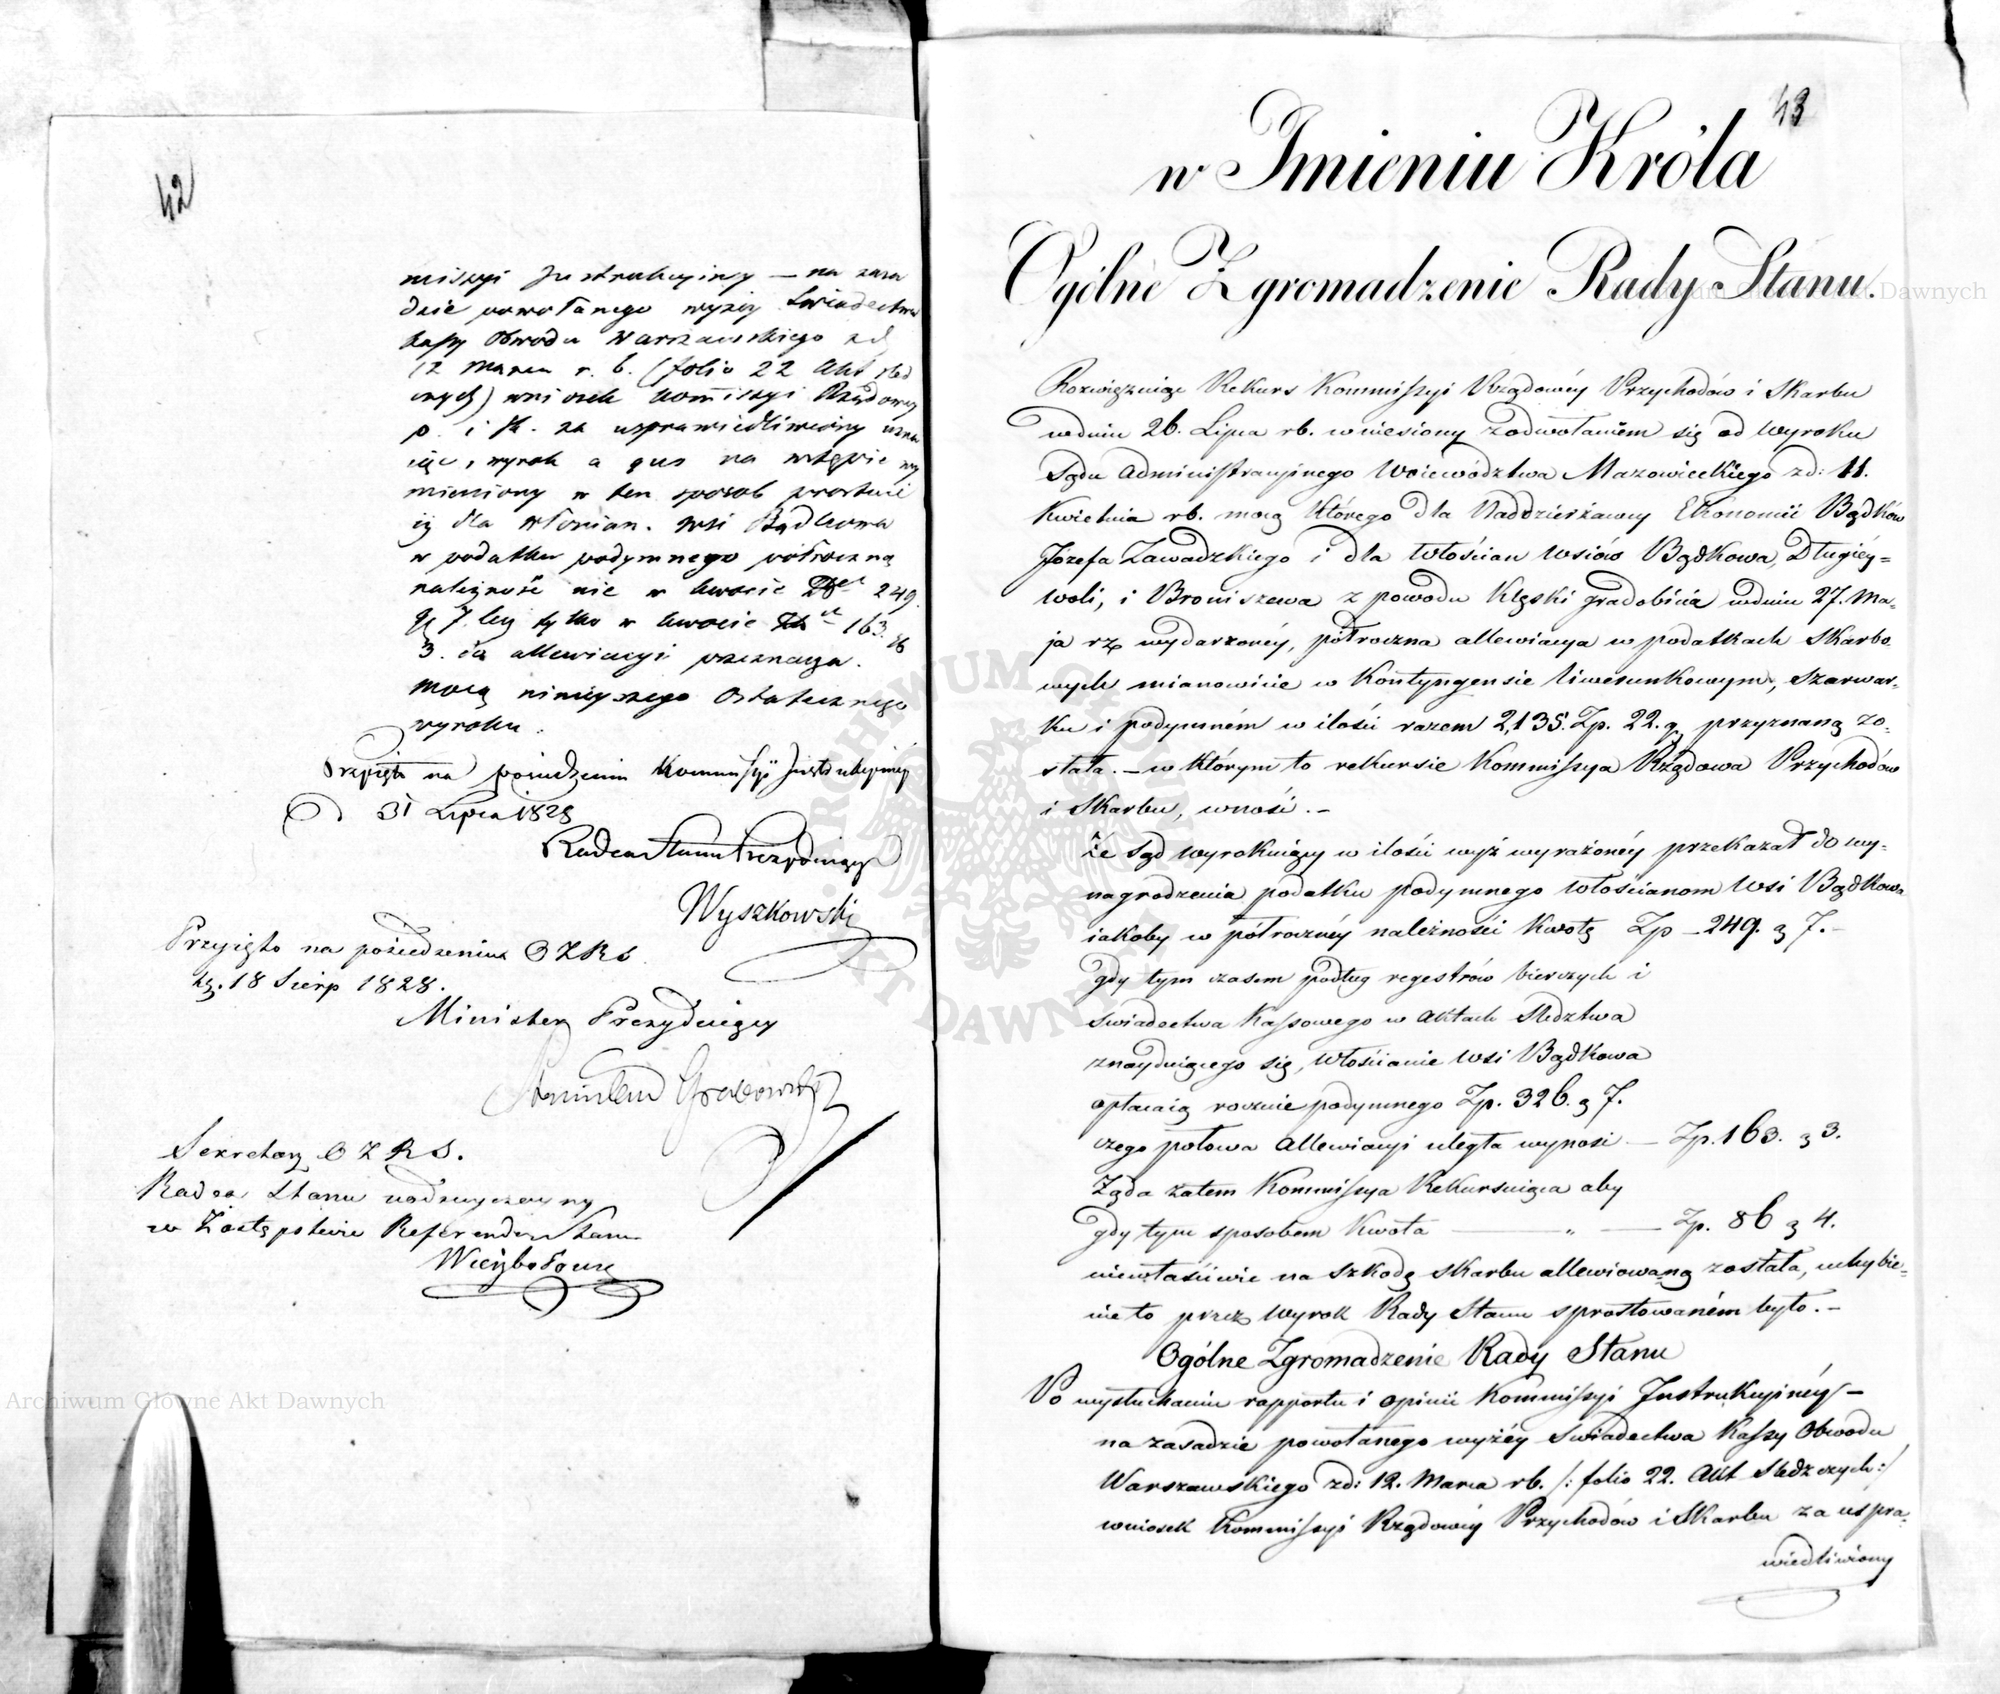 42
missyi Instrukcyiney — na zasa
dzie powołanego wyżey Świadectwa
Kassy Obwodu Warszawskiego z d
12 Marca r. b. (folio 22 Akt śled
czych) wniosek Kommissyi Rządowey
P. i Sk. za usprawiedliwiony uzna
iąc, wyrok a quo na wstępie wy
mieniony w ten sposób prostuie
iż dla włościan wsi Bądkowa
w podatku podymnego półroczną
należność nie w kwocie 249.
g 7. lecz tylko w kwocie 163. g
3. do allewiacyi przeznacza.
mocą ninieyszego Ostatecznego
wyroku.
Przyięto na posiedzeniu Kommissyi Instrukcyiney
D. d 31 Lipca 1828
Radca Stanu Prezyduiący
Wyszkowski
Przyięto na posiedzeniu O Z R S.
d. 18 Sierp 1828.
Minister Prezyduiący
Stanisław Grabowski
Sekretarz O Z R S.
Radca Stanu nadzwyczayny
w Zastępstwie Referendarz Stanu
43
w Imieniu Króla
Ogólne Zgromadzenie Rady Stanu.
Rozwiązuiąc Rekurs Kommissyi Rządowéy Przychodów i Skarbu
w dniu 26. Lipca rb. wniesiony z odwołaniem się od Wyroku
Sądu Administracyinego Woiewództwa Mazowieckiego z d: 11.
Kwietnia rb. mocą którego dla Naddzierżawcy Ekonomii Bądków
Józefa Zawadzkiego i dla Włościan Wsiów Bądkowa, Długiéy-
woli, i Broniszewa z powodu Klęski gradobicia w dniu 27. Ma-
ja rz wydarzonéy, półroczna allewiacya w podatkach Skarbo-
wych mianowicie w Kontyngensie liwerunkowym, Szarwar-
ku i podymném w ilości razem 2,135. Zp. 22. g przyznaną zo-
stała. — w którym to rekursie Kommissya Rządowa Przychodów
i Skarbu, wnosi. —
że Sąd wyrokuiący w ilości wyż wyrażonéy przekazał do wy-
nagrodzenia podatku podymnego Włościanom Wsi Bądkowa
iakoby w półrocznéy należności Kwotę Zp — 249. g 7. —
gdy tym czasem podług regestrów bierczych i
Świadectwa Kassowego w Aktach Śledztwa
znayduiącego się, Włościanie Wsi Bądkowa
opłacaią rocznie podymnego Zp. 326. g 7.
czego połowa Allewiacyi uległa wynosi — Zp. 163. g 3.
Żąda zatem Kommissya Rekursuiąca aby
gdy tym sposobem Kwota — „ — Zp. 86 g 4.
niewłaściwie na szkodę Skarbu allewiowaną została, uchybie-
nie to przez Wyrok Rady Stanu sprostowaném było. —
Ogólne Zgromadzenie Rady Stanu
Po wysłuchaniu rapportu i opinii Kommissyi Instrukcyinéy —
na zasadzie powołanego wyżéy Świadectwa Kassy Obwodu
Warszawskiego z d: 12. Marca rb. /: folio 22. Akt Śledczych :/
wniosek Kommissyi Rządowéy Przychodów i Skarbu za uspra-
wiedliwiony
Archiwum Główne Akt Dawnych